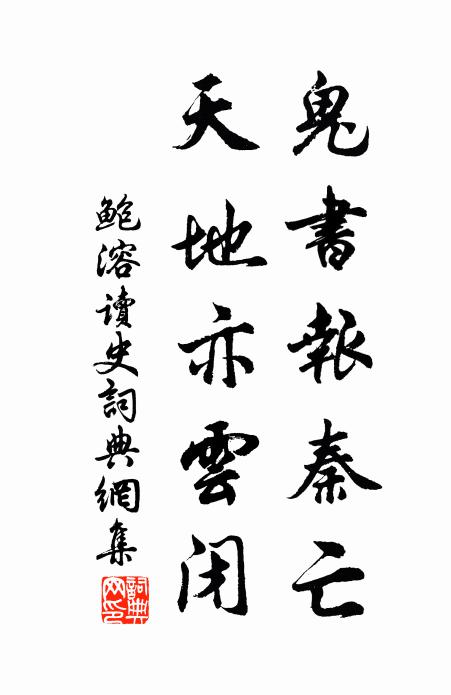 鬼書報秦亡
天地亦雲闭
鲍溶讀史詞典網集
詞典网印